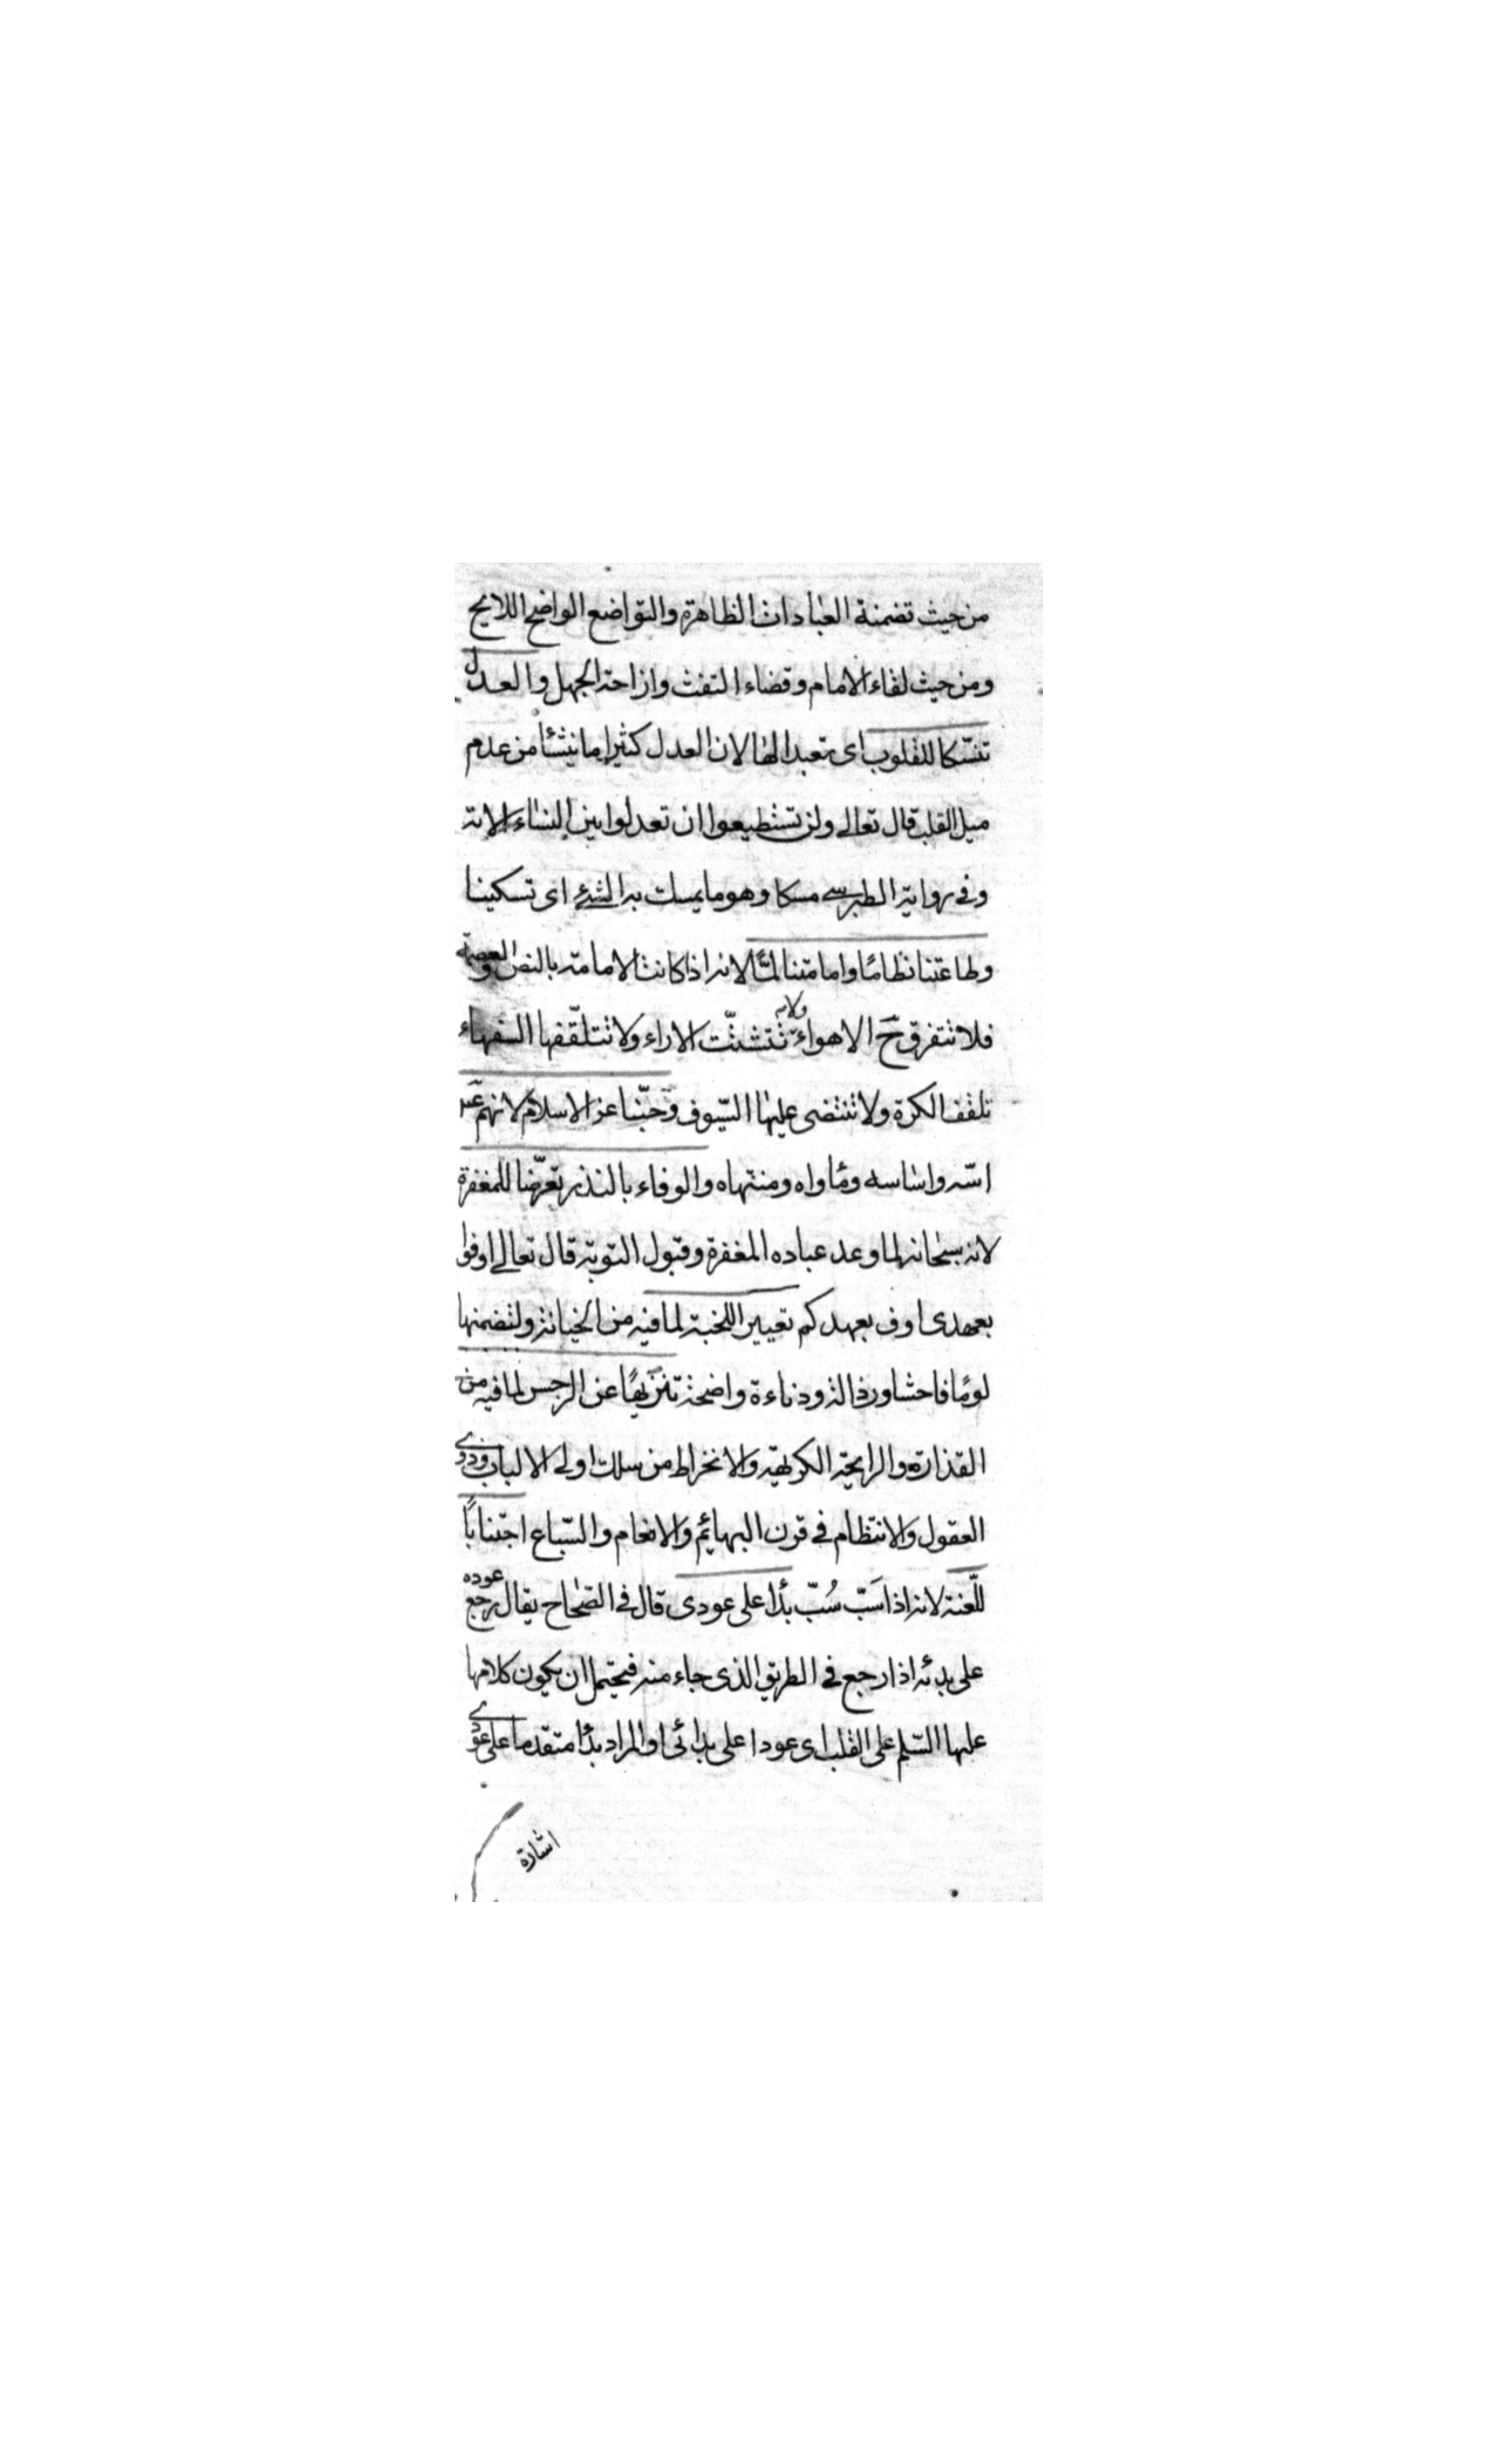 من حيث تضمنة العبادات الظاهرة والتواضع الواضح اللايح
ومن حيث لقاء الامام وقضاء التفث وازاحة الجهل والعدل
تنسّكا للقلوب اى تعبدا لها لان العدل كثيرا ما ينشأ من عدم
ميل القلب قال تعالى ولن تستطيعوا ان تعدلوا بين النساء الاية
وفى رواية الطبرسى مسكا وهو ما يمسك به الشئ اى تسكينا
وطاعتنا نظامًا وامامتنا لمًّا لانه اذا كانت الامامة بالنص والعصمة
فلا تتفرق ح الاهواء ولا تتشتّت الاراء ولا تتلقّفها السفهاء
تلقف الكرة ولا تنتضى عليها السّيوف وحبّنا عز الاسلام لانهم
اسّه واساسه ومأواه ومنتهاه والوفاء بالنذر تعرّضا للمغفرة
لانه سبحانه لما وعد عباده المغفرة وقبول التوبة قال تعالى اوفوا
بعهدى اوف بعهدكم تعيير النخبة لما فيه من الخيانة ولتضمنها
لومًا فاحشا ورذالة ودناءة واضحة تنزيهًا عن الرجس لما فيه من
القذارة والرايحة الكريهة والانخراط من سلك اولى الالباب وذوى
العقول والانتظام فى قرن البهائم والانعام والسّباع اجتنابًا
للّعنة لانه اذا سَبّ سُبّ بدأ على عودى قال فى الصّحاح يقال رجع عوده
على بدئه اذا رجع فى الطريق الذى جاء منه فيحتمل ان يكون كلامها
عليها السّلم على القلب اى عودا على بدائى او المراد بدأ متقدما على عودى
اشارة